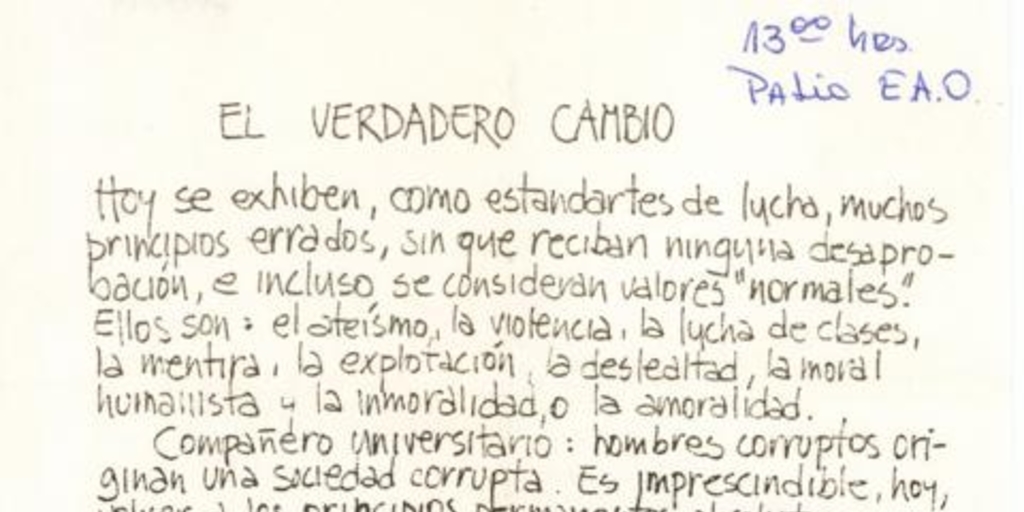 13⁰⁰ hrs.
Patio E.A.O.
EL VERDADERO CAMBIO
Hoy se exhiben, como estandartes de lucha, muchos
principios errados, sin que reciban ninguna desapro-
bación, e incluso se consideran valores "normales".
Ellos son: el ateísmo, la violencia, la lucha de clases,
la mentira, la explotación, la deslealtad, la moral
humanista y la inmoralidad, o la amoralidad.
Compañero universitario: hombres corruptos ori-
ginan una sociedad corrupta. Es imprescindible, hoy,
a los principios